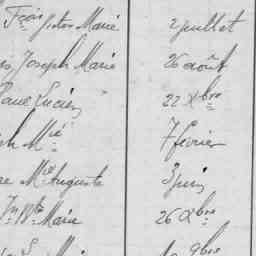 Fçois Marie 2 juillet
Joseph Marie 26 août
Paul Lucien 22 Xbre
ph Mie 7 février
Mie Auguste 3 juin
Jn Bte Marie 26 Xbre
9bre